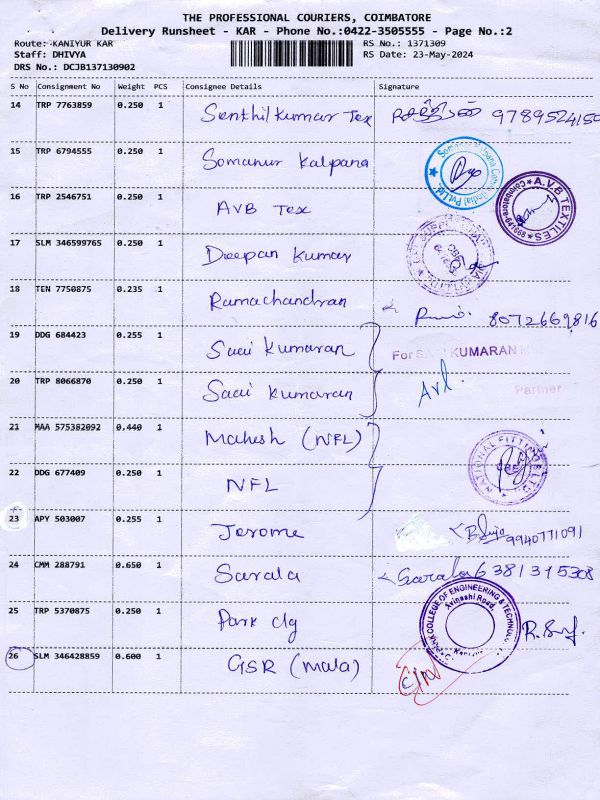 THE PROFESSIONAL COURIERS, COIMBATORE
Delivery Runsheet - KAR - Phone No.:0422-3505555 - Page No.:2
Route: KANIYUR KAR
Staff: DHIVYA
DRS No.: DCJB137130902
RS No.: 1371309
RS Date: 23-May-2024
S No Consignment No Weight PCS Consignee Details Signature
14 TRP 7763859 0.250 1 Senthil Kumar Tex 9789524150
15 TRP 6794555 0.250 1 Somanur Kalpana
16 TRP 2546751 0.250 1 AVB Tex
A.V.B TEXTILES
17 SLM 346599765 0.250 1 Deepan Kumar
18 TEN 7750875 0.235 1 Ramachandran 8072669816
19 DDG 684423 0.255 1 Saai Kumaran For SAAI KUMARAN
20 TRP 8066870 0.250 1 Saai Kumaran Partner
21 MAA 575382092 0.440 1 Mahesh (NFL)
22 DDG 677409 0.250 1 NFL
NATIONAL FITTING LTD
23 APY 503007 0.255 1 Jerome 9940771091
24 CMM 288791 0.650 1 Sarala Sarala 6381315308
25 TRP 5370875 0.250 1 Park clg
PARK COLLEGE OF ENGINEERING & TECHNOLOGY
Avinashi Road,
26 SLM 346428859 0.600 1 GSR (Mala)